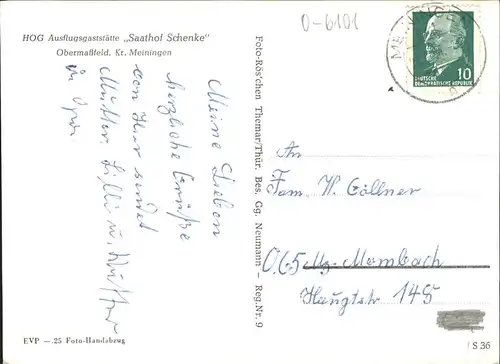 HOG Ausflugsgaststätte „Saathof Schenke"
Obermaßfeld. Kr. Meiningen
Meine Lieben
herzliche Grüße
von hier sendet
Mutter, Lilli u.
u. Opa
EVP —.25 Foto-Handabzug
Foto-Rös'chen Themar/Thür. Bes. Gg. Neumann – Reg.Nr. 9
0-6101
DEUTSCHE
DEMOKRATISCHE REPUBLIK
10
An
Fam. W. Göllner
065 Mz. Mombach
Hauptstr 145
/ S 36